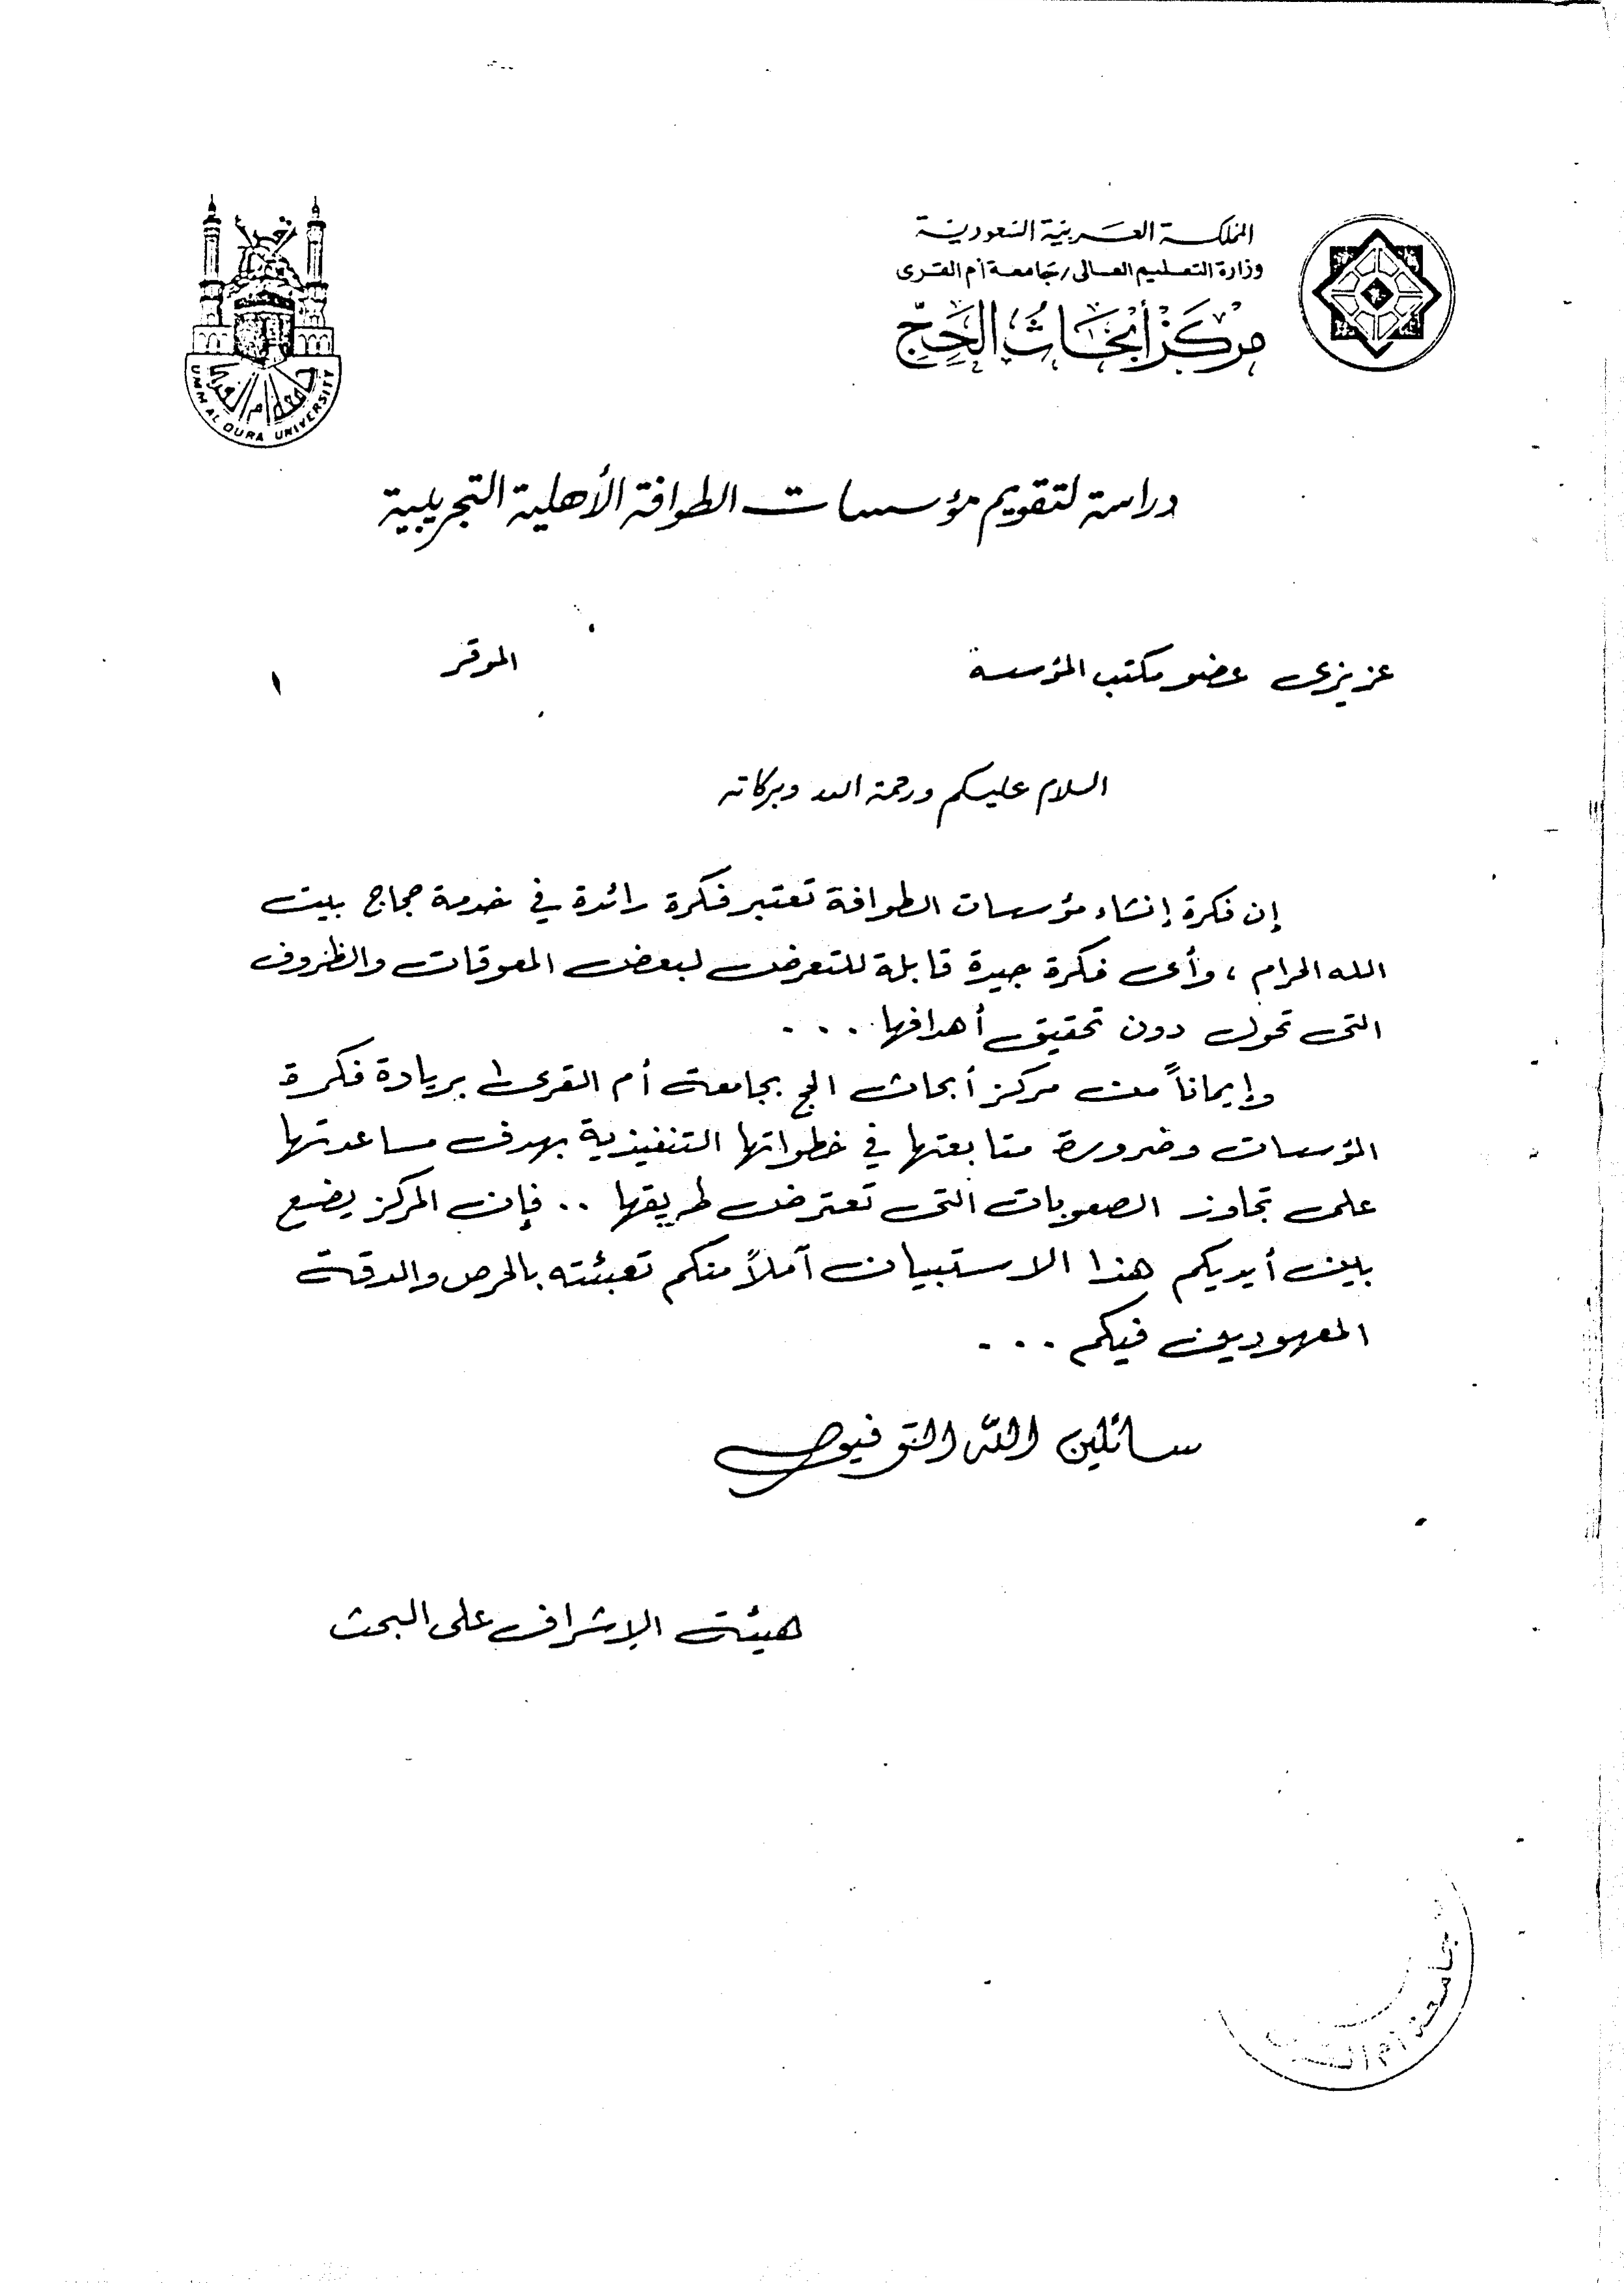 المملكة العربية السعودية
وزارة التعليم العالى / جامعة أم القرى
مركز أبحاث الحج
جامعة أم القرى
UMM AL QURA UNIVERSITY
دراسة لتقويم مؤسسات الطوافة الأهلية التجريبية
عزيزى عضو مكتب المؤسسة الموقر
السلام عليكم ورحمة الله وبركاته
إن فكرة إنشاء مؤسسات الطوافة تعتبر فكرة رائدة في خدمة حجاج بيت
الله الحرام ، وأى فكرة جيدة قابلة للتعرض لبعض المعوقات والظروف
التى تحول دون تحقيق أهدافها . . .
وإيماناً من مركز أبحاث الحج بجامعة أم القرى بريادة فكرة
المؤسسات وضرورة متابعتها في خطواتها التنفيذية بهدف مساعدتها
على تجاوز الصعوبات التى تعترض طريقها .. فإن المركز يضع
بين أيديكم هذا الاستبيان آملاً منكم تعبئته بالحرص والدقة
المعهودين فيكم . . .
سائلين الله التوفيق
هيئة الإشراف على البحث
جامعة أم القرى